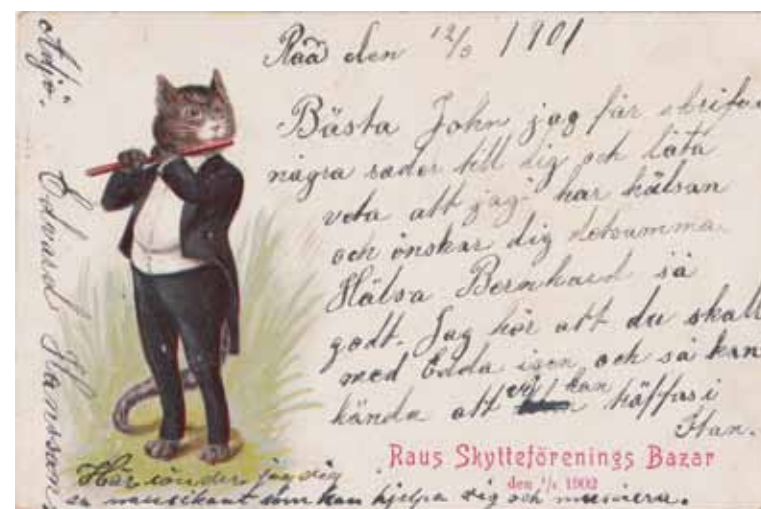 Råå den 12/5 1901
Bästa John jag får skrifva
några rader till dig och låta
veta att jag har hälsan
och önskar dig detsamma.
Hälsa Bernhard så
godt. Jag hör att du skall
med Edda igen och så kan
hända att vi kan träffas i
Stan.
Raus Skytteförenings Bazar
den 1902
Här sänder jag dig
en musikant som kan hjelpa dig och musisera.
Adjö. Edvard Hansson.